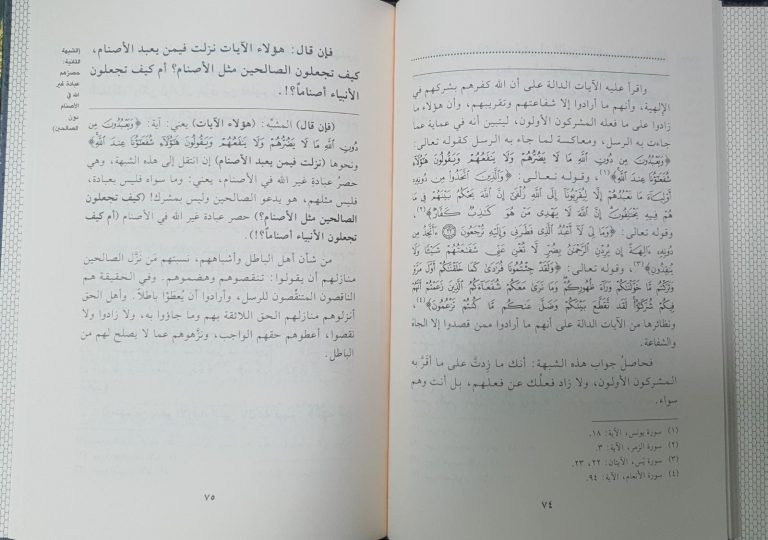 واقرأ عليه الآيات الدالة على أن الله كفرهم بشركهم في
الإلهية، وأنهم ما أرادوا إلا شفاعتهم وتقريبهم، وأن هؤلاء ما
زادوا على ما فعله المشركون الأولون، ليتبين أنه في عماية عما
جاءت به الرسل، ومعاكسة لما جاء به الرسل كقوله تعالى:
﴿وَيَعْبُدُونَ مِن دُونِ اللَّهِ مَا لَا يَضُرُّهُمْ وَلَا يَنفَعُهُمْ وَيَقُولُونَ هَٰؤُلَاءِ
شُفَعَٰٓؤُنَا عِندَ اللَّهِ﴾(١)، وقوله تعالى: ﴿وَالَّذِينَ اتَّخَذُوا مِن دُونِهِ
أَوْلِيَاءَ مَا نَعْبُدُهُمْ إِلَّا لِيُقَرِّبُونَا إِلَى اللَّهِ زُلْفَىٰ إِنَّ اللَّهَ يَحْكُمُ بَيْنَهُمْ فِي مَا
هُمْ فِيهِ يَخْتَلِفُونَ إِنَّ اللَّهَ لَا يَهْدِي مَنْ هُوَ كَاذِبٌ كَفَّارٌ﴾(٢)،
وقوله تعالى: ﴿وَمَا لِيَ لَا أَعْبُدُ الَّذِي فَطَرَنِي وَإِلَيْهِ تُرْجَعُونَ ۝٢٢ ءَأَتَّخِذُ مِن
دُونِهِ ءَالِهَةً إِن يُرِدْنِ الرَّحْمَٰنُ بِضُرٍّ لَّا تُغْنِ عَنِّي شَفَاعَتُهُمْ شَيْئًا وَلَا
يُنقِذُونِ﴾(٣)، وقوله تعالى: ﴿وَلَقَدْ جِئْتُمُونَا فُرَادَىٰ كَمَا خَلَقْنَاكُمْ أَوَّلَ مَرَّةٍ
وَتَرَكْتُم مَّا خَوَّلْنَاكُمْ وَرَاءَ ظُهُورِكُمْ وَمَا نَرَىٰ مَعَكُمْ شُفَعَاءَكُمُ الَّذِينَ زَعَمْتُمْ أَنَّهُمْ
فِيكُمْ شُرَكَٰٓؤُا لَقَد تَّقَطَّعَ بَيْنَكُمْ وَضَلَّ عَنكُم مَّا كُنتُمْ تَزْعُمُونَ﴾(٤)،
ونظائرها من الآيات الدالة على أنهم ما أرادوا ممن قصدوا إلا الجاه
والشفاعة.
فحاصلُ جواب هذه الشبهة: أنك ما زِدتَّ على ما أقرَّ به
المشركون الأولون، ولا زاد فعلُك عن فعلهم، بل أنت وهم
سواء.
(١) سورة يونس، الآية: ١٨.
(٢) سورة الزمر، الآية: ٣.
(٣) سورة يٓس، الآيتان: ٢٢، ٢٣.
(٤) سورة الأنعام، الآية: ٩٤.
٧٤
فإن قال: هؤلاء الآيات نزلت فيمن يعبد الأصنام،
كيف تجعلون الصالحين مثل الأصنام؟ أم كيف تجعلون
الأنبياء أصناماً؟!.
(الشبهة
الثانية:
حصرُهم
عبادة غير
الله في
الأصنام
دون
الصالحين)
(فإن قال) المشبِّه: (هؤلاء الآيات) يعني: آية: ﴿وَيَعْبُدُونَ مِن
دُونِ اللَّهِ مَا لَا يَضُرُّهُمْ وَلَا يَنفَعُهُمْ وَيَقُولُونَ هَٰؤُلَاءِ شُفَعَٰٓؤُنَا عِندَ اللَّهِ﴾
ونحوها (نزلت فيمن يعبد الأصنام) إن انتقل إلى هذه الشبهة، وهي
حصرُ عبادةِ غير الله في الأصنام، يعني: وما سواه فليس بعبادة،
فليس مثلهم، هو يدعو الصالحين وليس بمشرك! (كيف تجعلون
الصالحين مثل الأصنام؟) حصر عبادة غير الله في الأصنام (أم كيف
تجعلون الأنبياء أصناماً؟!).
من شأن أهل الباطل وأشباههم، نسبتهم مَن نزَّل الصالحين
منازلهم أن يقولوا: تنقصوهم وهضموهم. وفي الحقيقة هم
الناقصون المتنقِّصون للرسل، وأرادوا أن يُعطَوْا باطلاً. وأهل الحق
أنزلوهم منازلهم الحق اللائقة بهم وما جاؤوا به، ولا زادوا ولا
نقصوا، أعطوهم حقهم الواجب، ونزَّهوهم عما لا يصلح لهم من
الباطل.
٧٥